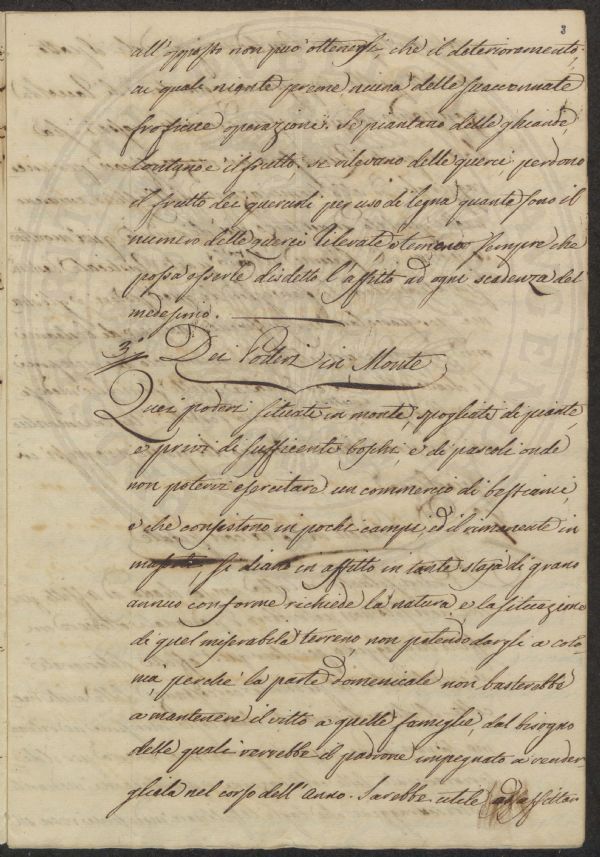 3
all'opposto non può ottenersi, che il deterioramento,
ai quali niente preme, niuna delle
operazioni. Se piantano delle ghiande,
lontano è il frutto, se allevano delle querci, perdono
il frutto dei querciuoli per uso di legna quante sono il
numero delle querci rilevate, e temono sempre che
possa esserle disdetto l'affitto ad ogni scadenza del
medesimo.
3.° Dei Poderi in Monte
Quei poderi situati in monte, spogliati di piante,
e privi di sufficienti boschi, e di pascoli onde
non potervi esercitare un commercio di bestiami,
e che consistono in pochi campi, ed il rimanente in
si diano in affitto in tante staja di grano
annuo conforme richiede la natura e la situazione
di quel miserabile terreno, non potendo dargli a colo-
nia, perché la parte domenicale non basterebbe
a mantenere il vitto a quelle famiglie, dal bisogno
delle quali verrebbe il padrone impegnato a vender-
gliela nel corso dell'anno. Sarebbe utile ad affittar